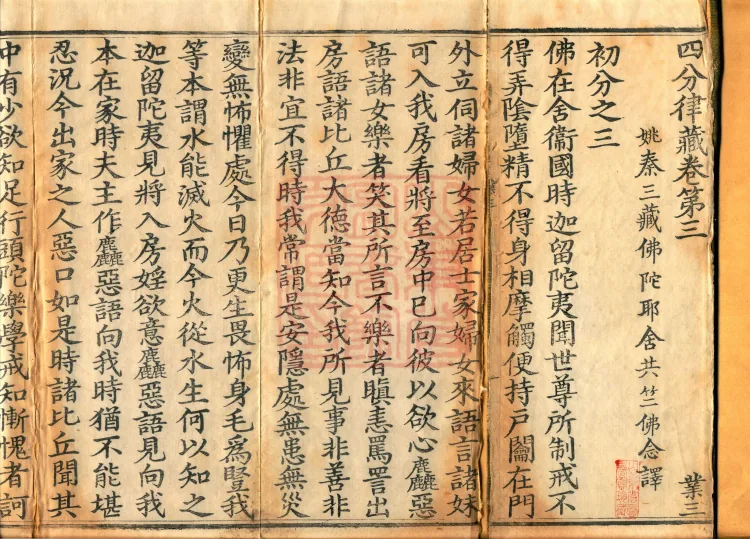 四分律藏卷第三 業三
姚秦三藏佛陀耶舍共竺佛念譯
初分之三
佛在舍衞國時迦留陀夷聞世尊所制戒不
得弄陰墮精不得身相摩觸便持戶鑰在門
外立伺諸婦女若居士家婦女來語言諸妹
可入我房看將至房中已向彼以欲心麤惡
語諸女樂者笑其所言不樂者瞋恚罵詈出
房語諸比丘大德當知今我所見事非善非
法非宜不得時我常謂是安隱處無患無災
變無怖懼處今日乃更生畏怖身毛為豎我
等本謂水能滅火而今火從水生何以知之
迦留陀夷見將入房婬欲意麤惡語見向我
本在家時夫主作麤惡語向我時猶不能堪
忍況今出家之人惡口如是時諸比丘聞其
中有少欲知足行頭陀樂學戒知慚愧者訶